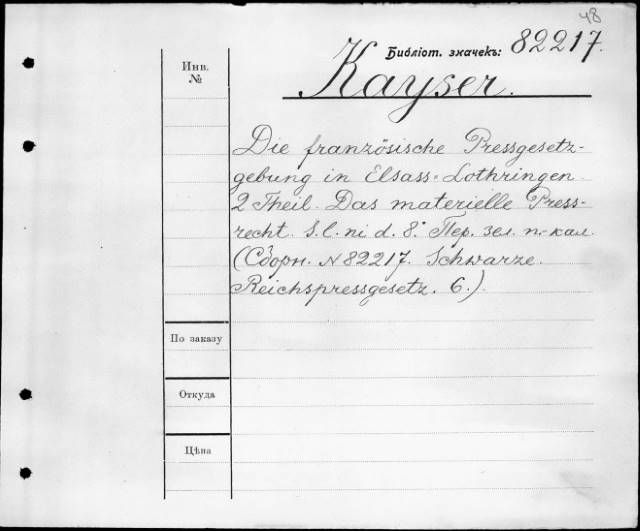 48
Библіот. значекъ: 82217.
Инв.
№
Kayser.
Die französische Pressgesetz-
gebung in Elsass-Lothringen.
2 Theil. Das materielle Press-
recht. S. l. ni d. 8° Пер. зел. п.-кал.
(Сборн. №82217. Schwarze.
Reichspressgesetz. 6.).
По заказу
Откуда
Цѣна